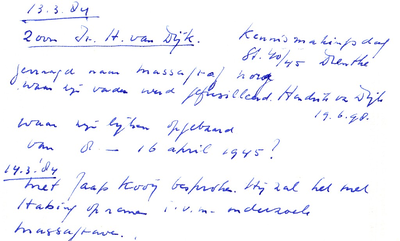 13.3.84
Zoon Dr. H. van Dijk. Kennismakingsdag
St. 40/45 Drenthe
gevraagd naar massagraf
waar zijn vader werd gefusilleerd. Hendrik van Dijk
19.6.98.
waar zijn lijken opgebaard
van 8 – 16 april 1945?
14.3.'84
met Jaap Kooij besproken. Hij zal het met
opnemen i.v.m. onderzoek
massagraven.